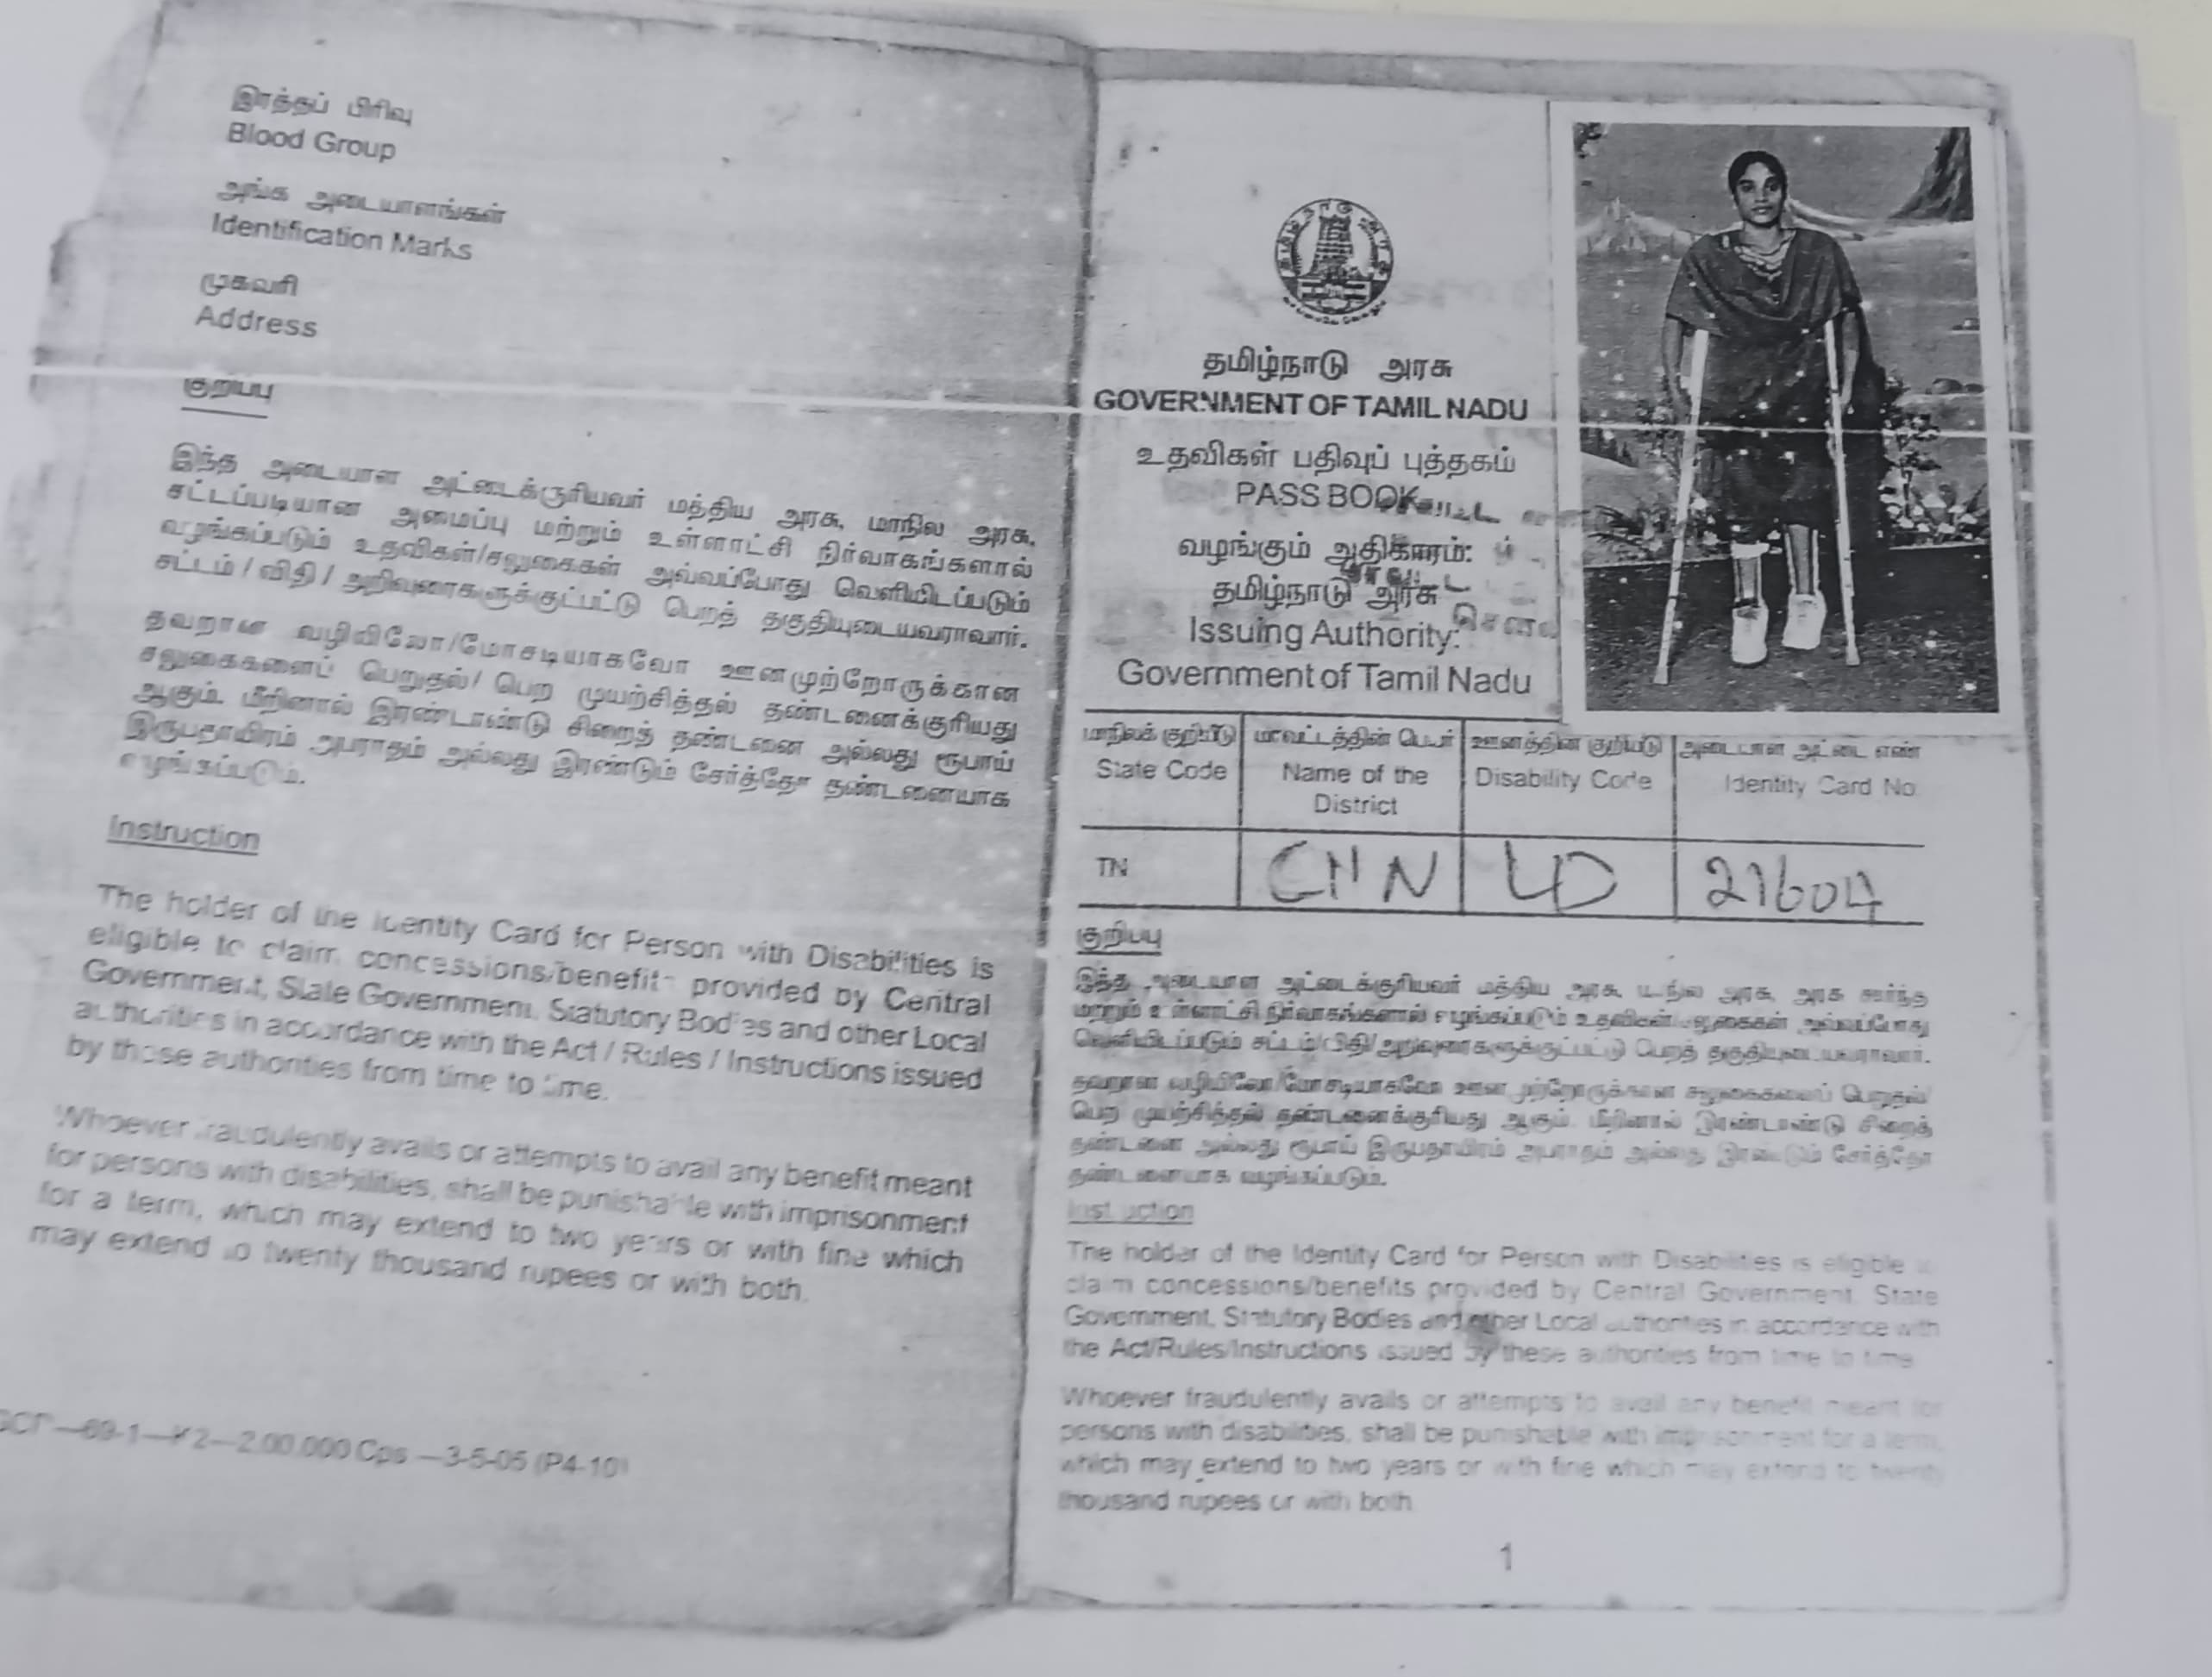 இரத்தப் பிரிவு
Blood Group
அங்க அடையாளங்கள்
Identification Marks
முகவரி
Address
குறிப்பு
இந்த அடையாள அட்டைக்குரியவர் மத்திய அரசு, மாநில அரசு,
சட்டப்படியான அமைப்பு மற்றும் உள்ளாட்சி நிர்வாகங்களால்
வழங்கப்படும் உதவிகள்/சலுகைகள் அவ்வப்போது வெளியிடப்படும்
சட்டம் / விதி / அறிவுரைகளுக்குட்பட்டு பெறத் தகுதியுடையவராவார்.
தவறான வழியிலோ/மோசடியாகவோ ஊனமுற்றோருக்கான
சலுகைகளைப் பெறுதல்/ பெற முயற்சித்தல் தண்டனைக்குரியது
ஆகும். மீறினால் இரண்டாண்டு சிறைத் தண்டனை அல்லது ரூபாய்
இருபதாயிரம் அபராதம் அல்லது இரண்டும் சேர்த்தோ தண்டனையாக
வழங்கப்படும்.
Instruction
The holder of the Identity Card for Person with Disabilities is
eligible to claim concessions/benefits provided by Central
Government, State Government, Statutory Bodies and other Local
authorities in accordance with the Act / Rules / Instructions issued
by those authorities from time to time.
Whoever fraudulently avails or attempts to avail any benefit meant
for persons with disabilities, shall be punishable with imprisonment
for a term, which may extend to two years or with fine which
may extend to twenty thousand rupees or with both.
69-1—K2—2,00,000 Cps —3-5-05 (P4-10)
தமிழ்நாடு அரசு
GOVERNMENT OF TAMIL NADU
உதவிகள் பதிவுப் புத்தகம்
PASS BOOK
வழங்கும் அதிகாரம்:
தமிழ்நாடு அரசு
Issuing Authority:
Government of Tamil Nadu
மாநிலக் குறியீடு மாவட்டத்தின் பெயர் ஊனத்தின் குறியீடு அடையாள அட்டை எண்
State Code Name of the District Disability Code Identity Card No
TN CHN LD 21604
குறிப்பு
இந்த அடையாள அட்டைக்குரியவர் மத்திய அரசு, மாநில அரசு, அரசு சார்ந்த
மற்றும் உள்ளாட்சி நிர்வாகங்களால் வழங்கப்படும் உதவிகள்/சலுகைகள் அவ்வப்போது
வெளியிடப்படும் சட்டம்/விதி/அறிவுரைகளுக்குட்பட்டு பெறத் தகுதியுடையவராவார்.
தவறான வழியிலோ/மோசடியாகவோ ஊனமுற்றோருக்கான சலுகைகளைப் பெறுதல்/
பெற முயற்சித்தல் தண்டனைக்குரியது ஆகும். மீறினால் இரண்டாண்டு சிறைத்
தண்டனை அல்லது ரூபாய் இருபதாயிரம் அபராதம் அல்லது இரண்டும் சேர்த்தோ
தண்டனையாக வழங்கப்படும்.
Instruction
The holder of the Identity Card for Person with Disabilities is eligible
claim concessions/benefits provided by Central Government, State
Government, Statutory Bodies and other Local authorities in accordance with
the Act/Rules/Instructions issued by these authorities from time to time
Whoever fraudulently avails or attempts to avail any benefit meant for
persons with disabilities, shall be punishable with imprisonment for a term,
which may extend to two years or with fine which may extend to twenty
thousand rupees or with both
1